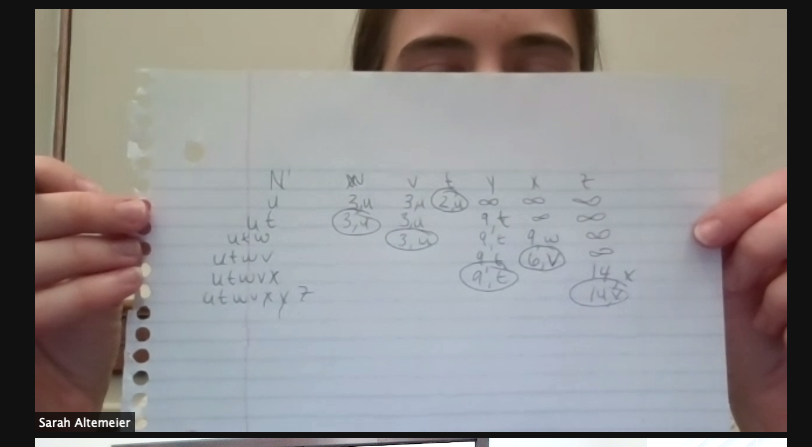 N' w v t y x z
u 3,u 3,u 2,u ∞ ∞ ∞
ut 3,u 3,u 9,t ∞ ∞
utw 3,u 9,t 9,w ∞
utwv 9,t 6,v ∞
utwvx 9,t 14,x
utwvxyz 14,x
Sarah Altemeier